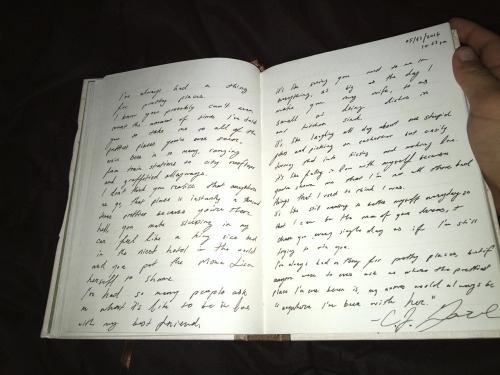 I've always had a thing
for pretty places.
I know you probably can't even
count the amount of times I've told
you to take me to all of the
prettiest places you've ever
been in so many, ranging
from train stations to city rooftops
and graffitied alleyways.
I don't think you realize that anywhere
we go, that place is instantly a thousand
times prettier because you're there.
hell, you make sleeping in my
car feel like a king size bed
in the nicest hotel in the world
and you put the Mona Lisa
herself to shame.
I've had so many people ask
me what it's like to be in love
with my best friend.
05/02/2016
10:53 pm
it's like seeing you need to me in
everything, as big as the day I
make you my wife, to as
small as doing dishes in
our kitchen sink.
it's like laughing all day about one stupid
joke and picking on eachother but easily
turning that into kissing and making love.
it's like falling in love with myself because
you've shown me that I'm not all those bad
things that I used to think I was.
it's like still making a better myself everyday so
that I can be the man of your dreams, &
chase you every single day as if I'm still
trying to win you.
I've always had a thing for pretty places, but if
anyone were to ever ask me where the prettiest
place I've ever been is, my answer would always be
"anywhere I've been with her."